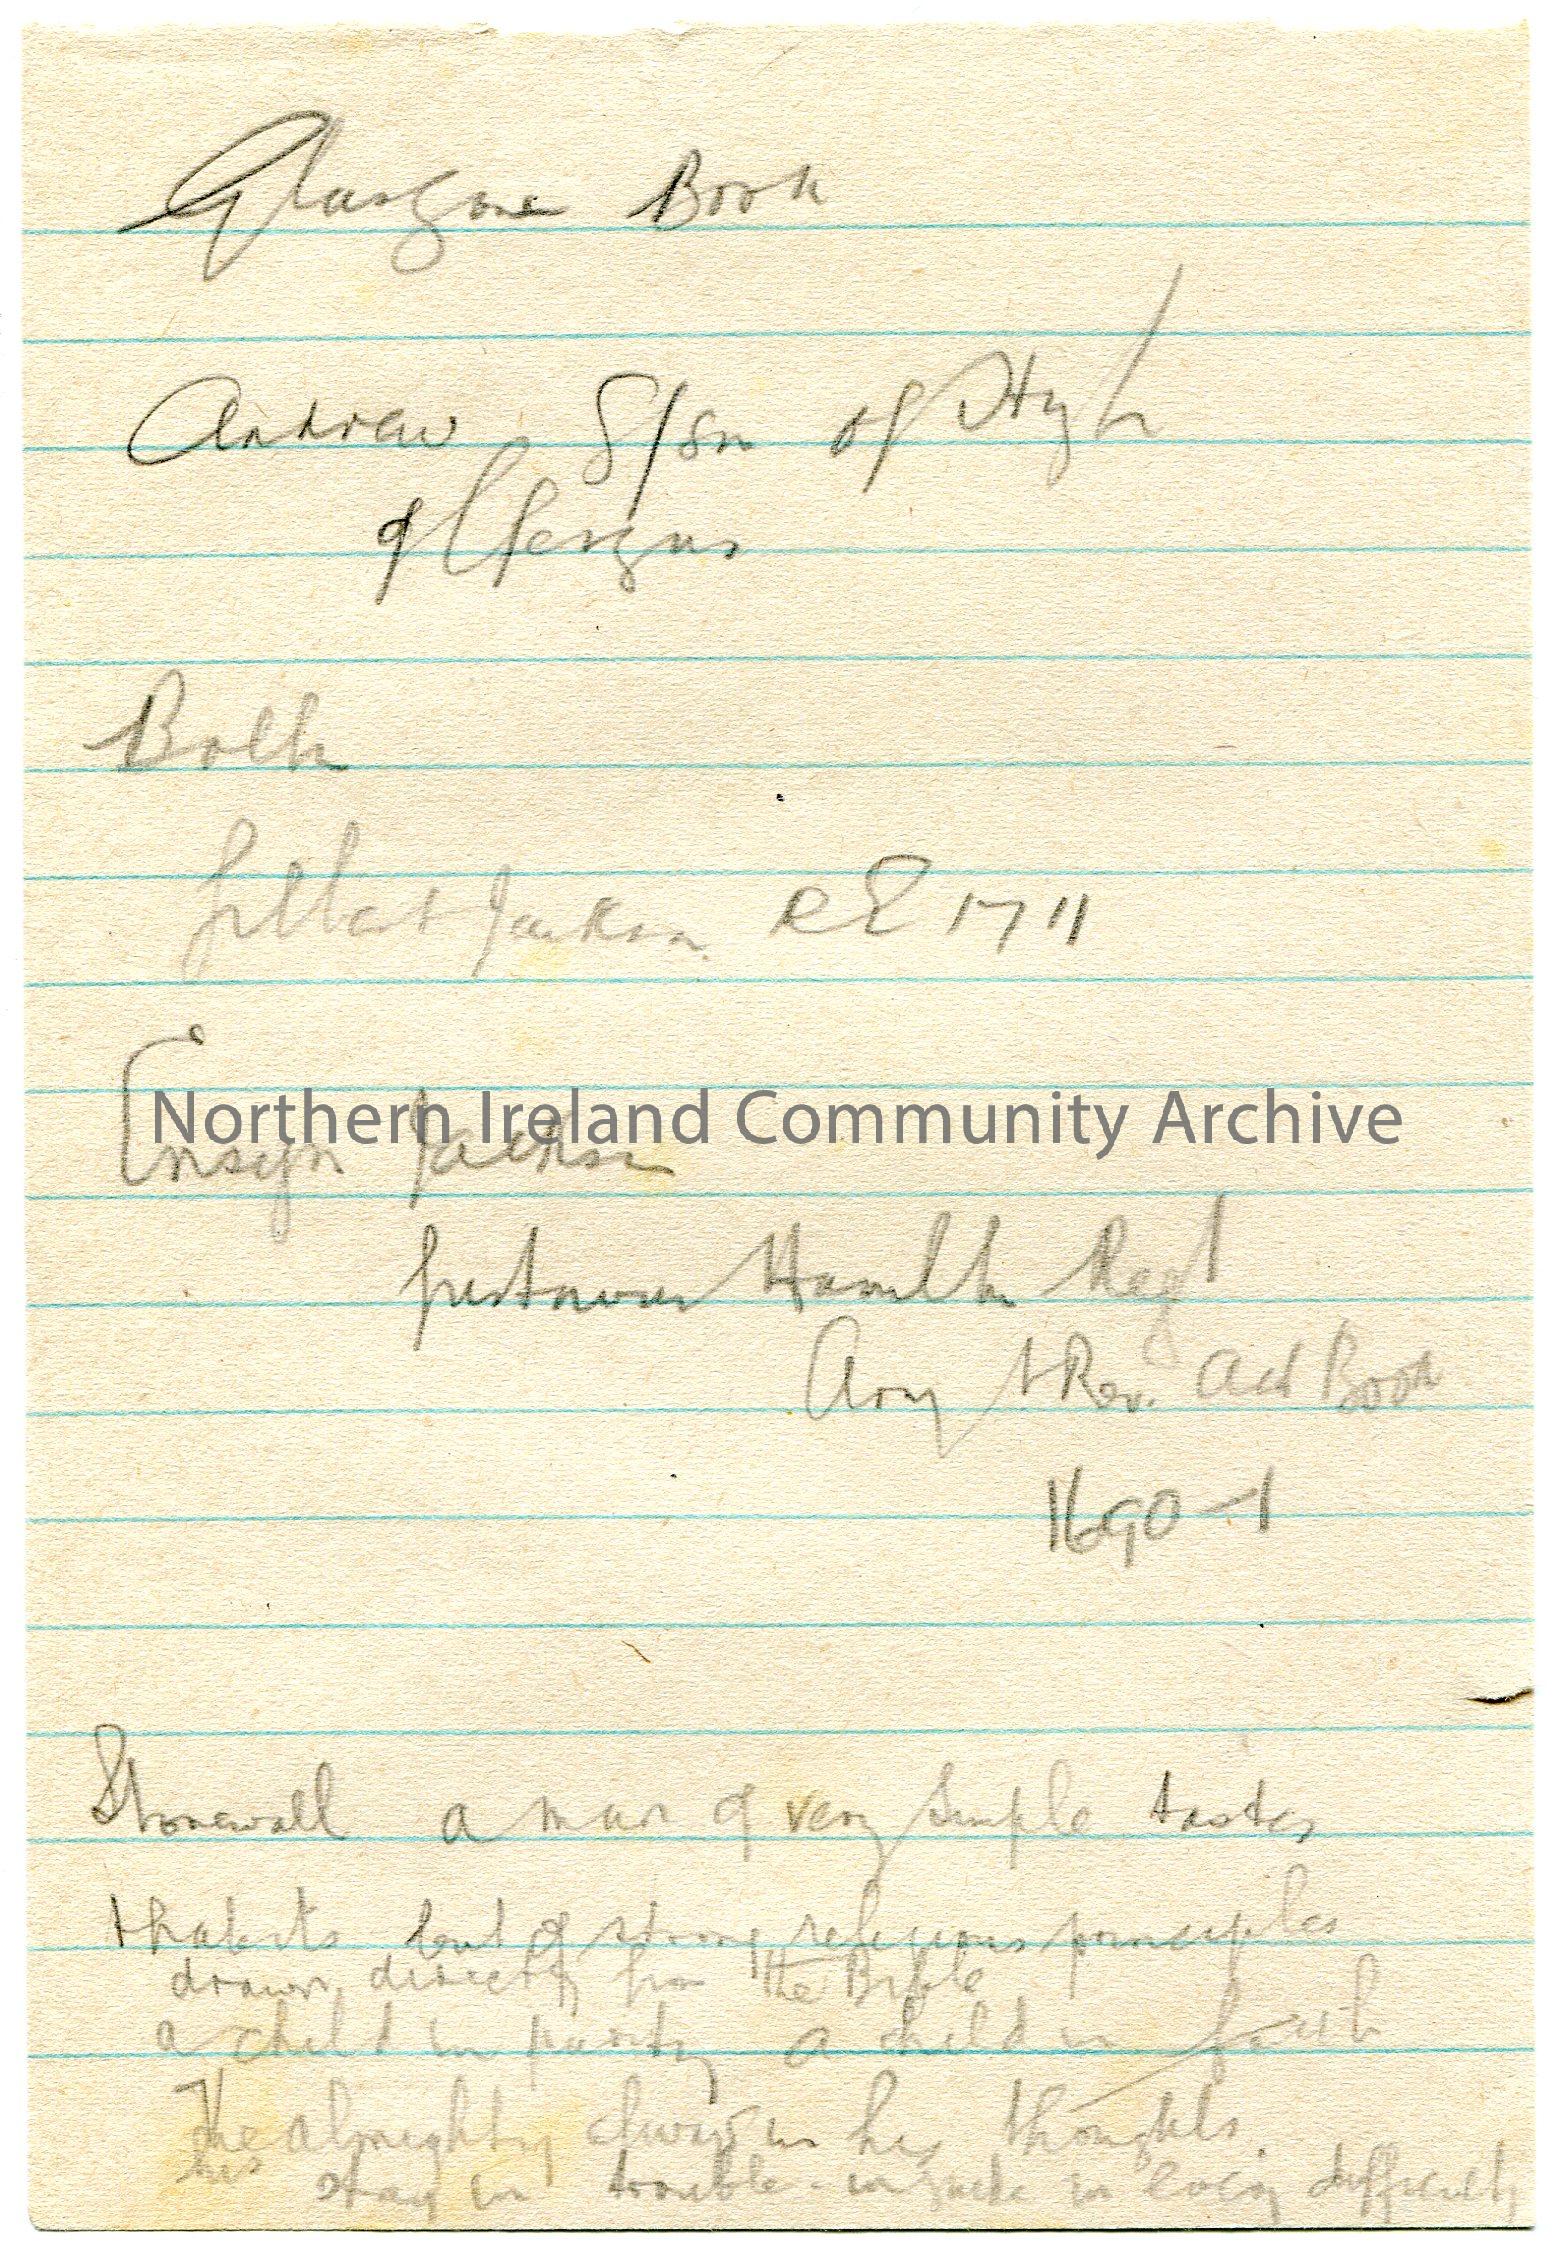 Glasgow Book
Andrew S/son of Hugh
of C/fergus
Both
Gilbert Jackson RE 1711
Ensign Jackson
Gustavus Hamilton Regt
Army + Rev. Act Book
1690-1
Northern Ireland Community Archive
Stonewall a man of very simple tastes
+ habits but of strong religious principles
drawn directly from the Bible
a child in purity a child in faith
The almighty always in his thoughts
his stay in trouble - in guide in every difficulty